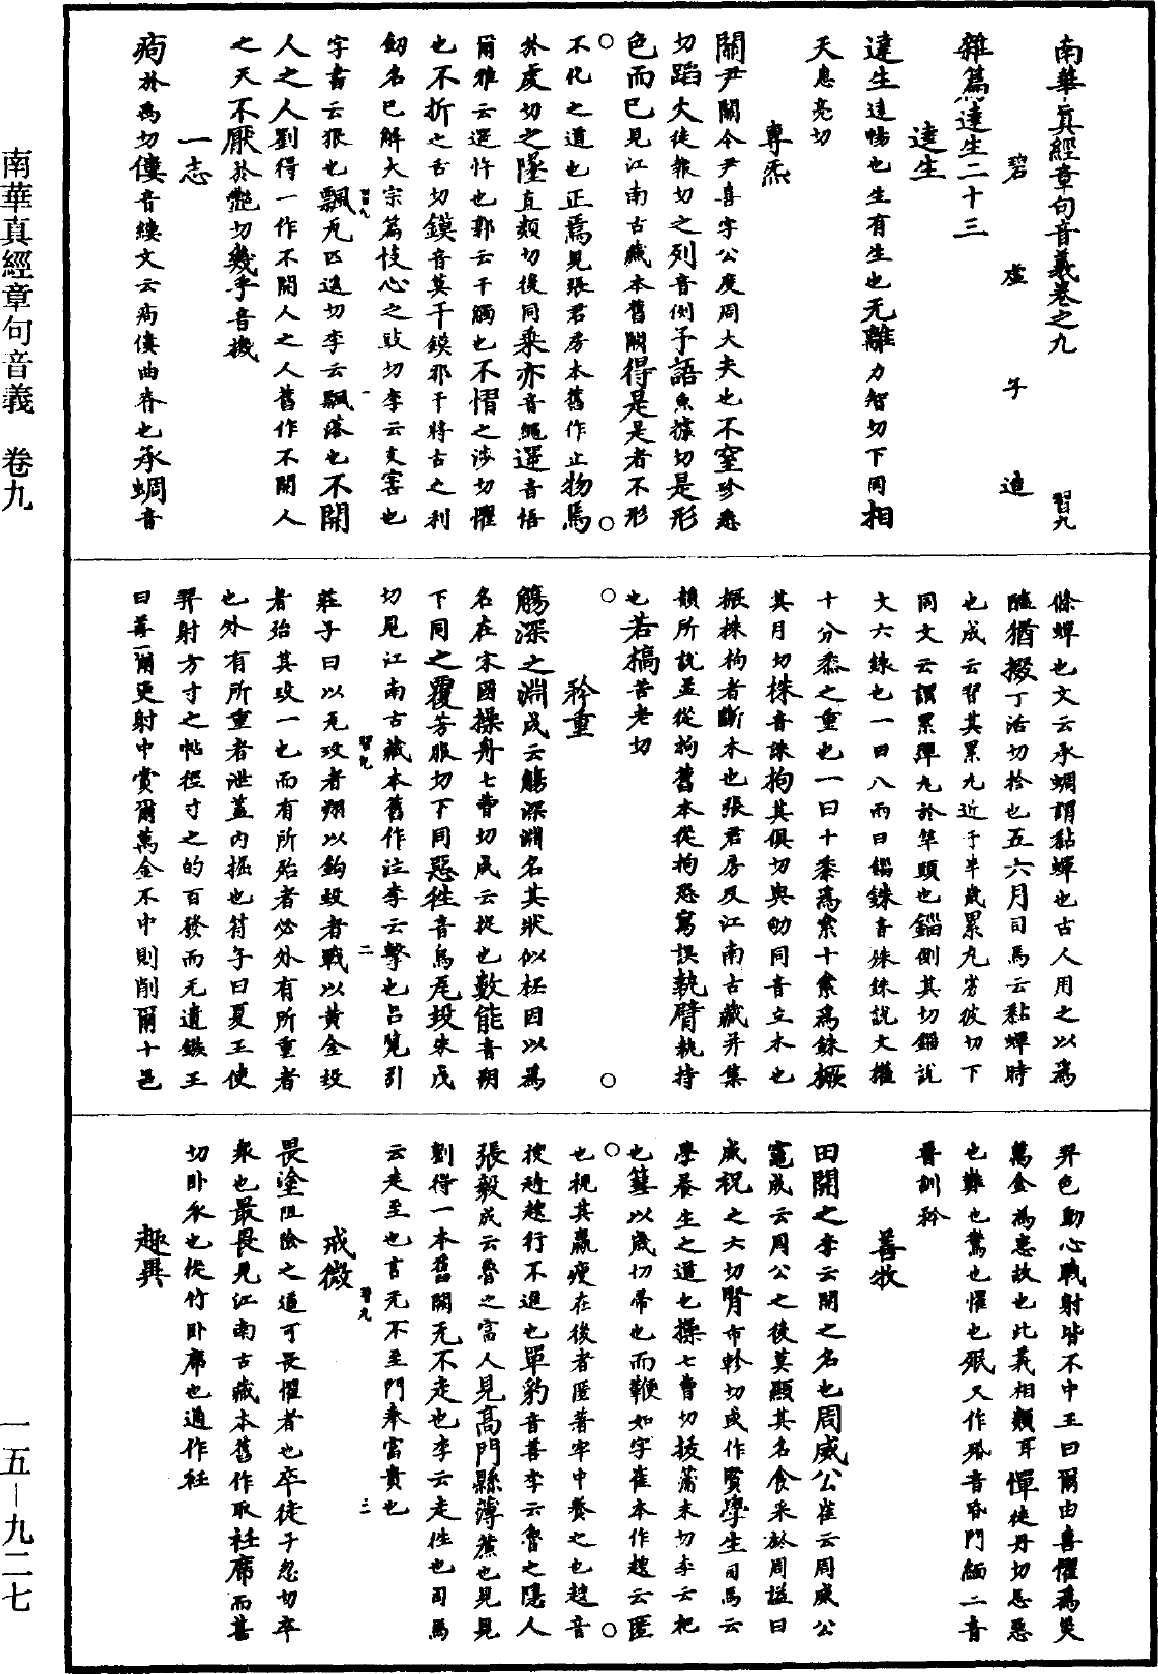 南華真經章句音義卷之九
習九
碧虛子述
雜篇達生二十三
達生
達生達暢也生有生也无離力智切下同相
天息亮切
專炁
關尹關令尹喜字公度周大夫也不窒珍悉
切蹈火徒報切之列音例子語魚據切是形
色而已見江南古藏本舊闕得是是者不形
不化之道也正焉見張君房本舊作止物焉
於虔切之墜直類切後同乘亦音繩遌音悟
爾雅云遌忤也郭云干觸也不慴之涉切懼
也不折之舌切鏌音莫干鏌邪干將古之利
劒名已解大宗篇忮心之豉切李云支害也
字書云狠也飄瓦匹遙切李云飄落也不開
人之人劉得一作不開人之人舊作不開人
之天不厭於艷切幾乎音機
一志
痀於禹切僂音縷文云痀僂曲脊也承蜩音
條蟬也文云承蜩謂黏蟬也古人用之以為
醢猶掇丁活切拾也五六月司馬云黏蟬時
也成云習其累丸近于半歲累丸劣彼切下
同文云謂累彈丸於竿頭也錙側其切錙說
文六銖也一曰八兩曰錙銖音殊銖說文權
十分黍之重也一曰十黍為絫十絫為銖橛
其月切株音誅拘其俱切與劬同音立木也
橛株拘者斷木也張君房及江南古藏并集
韻所說並從拘舊本從拘恐寫誤執臂執持
也若槁苦老切
矜重
觴深之淵成云觴深淵名其狀似桮因以為
名在宋國操舟七曹切成云捉也數能音朔
下同之覆芳服切下同惡往音烏瓦投朱戊
切見江南古藏本舊作注李云擊也呂覽引
莊子曰以瓦投者翔以鈎投者戰以黃金投
者殆其投一也而有所殆者必外有所重者
也外有所重者泄蓋內掘也符子曰夏王使
羿射方寸之帖徑寸之的百發而无遺鏃王
曰善一爾更射中賞爾萬金不中則削爾十邑
羿色動心戰射皆不中王曰爾由喜懼為災
萬金為患故也此義相類耳憚徒丹切忌惡
也難也驚也懼也殙又作殙音昏門緬二音
晉訓矜
善牧
田開之李云開之名也周威公崔云周威公
竈成云周公之後莫顯其名食采於周謚曰
威祝之六切腎市軫切或作賢學生司馬云
學養生之道也操七曹切拔蒲末切李云杷
也篲以歲切帚也而鞭如字崔本作趡云匿
也視其羸瘦在後者匿著牢中養之也趡音
挼趑趄行不進也單豹音善李云魯之隱人
張毅成云魯之富人見高門縣薄簾也見見
劉得一本舊闕无不走也李云走往也司馬
云走至也言无不至門奉富貴也
戒微
畏塗阻險之道可畏懼者也卒徒子忽切卒
衆也最畏見江南古藏本舊作取衽席而甚
切臥衣也從竹臥席也通作衽
趣異
習九
一
習九
二
習九
三
南華真經章句音義　卷九
一五－九二七